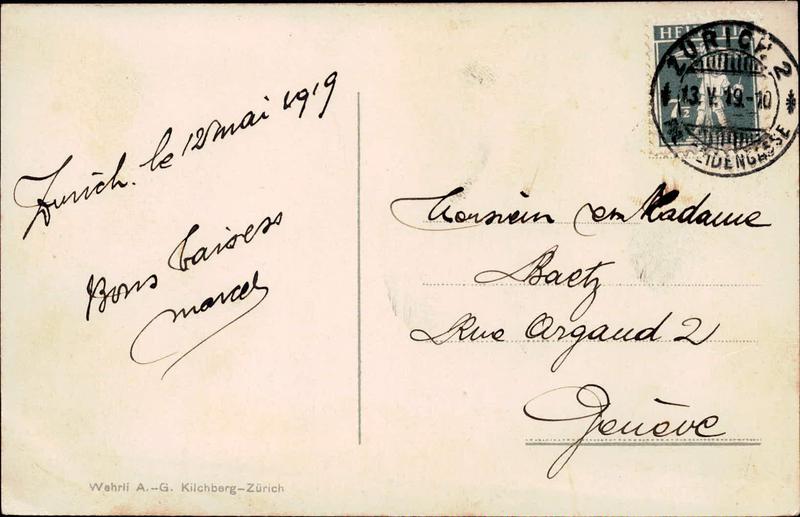 Zurich. le 12 mai 1919
Bons baisers
Marcel
Monsieur et Madame
Baetz
Rue Argand 2
Genève
Wehrli A.-G. Kilchberg-Zürich
HELVETIA
7½
ZÜRICH 2
13.V.19.-10
SEIDENGASSE